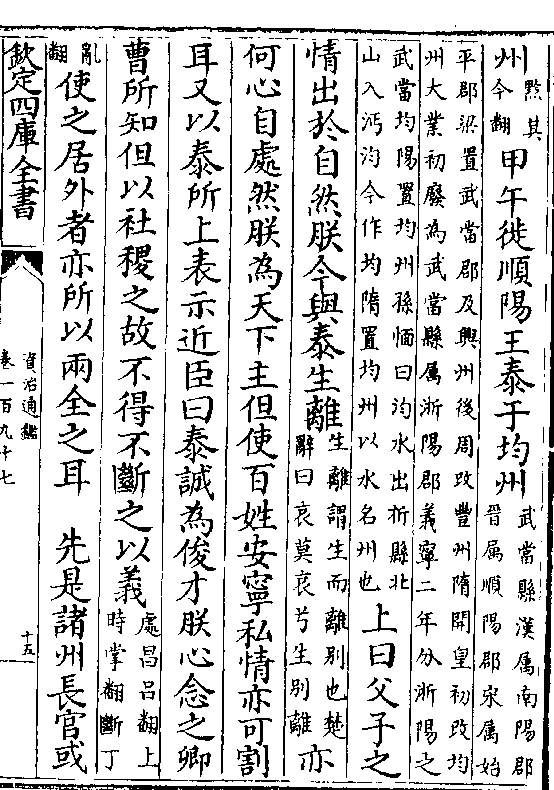 州黔其今翻甲午徙順陽王泰于均州武當縣漢属南陽郡晉属順陽郡宋属始
平郡梁置武當郡及興州後周改豐州隋開皇初改均
州大業初廢為武當縣属淅陽郡義寧二年分淅陽之
武當均陽置均州孫愐曰汮水出析縣北山入沔汮今作均隋置均州以水名州也上曰父子之
情出於自然朕今與泰生離生離謂生而離別也楚辭曰哀莫哀兮生別離亦
何心自處然朕為天下主但使百姓安寧私情亦可割
耳又以泰所上表示近臣曰泰誠為俊才朕心念之卿
曹所知但以社稷之故不得不斷之以義處昌呂翻上時掌翻斷丁
亂翻使之居外者亦所以兩全之耳 先是諸州長官或
欽定四庫全書
資治通鑑
卷一百九十七
十五